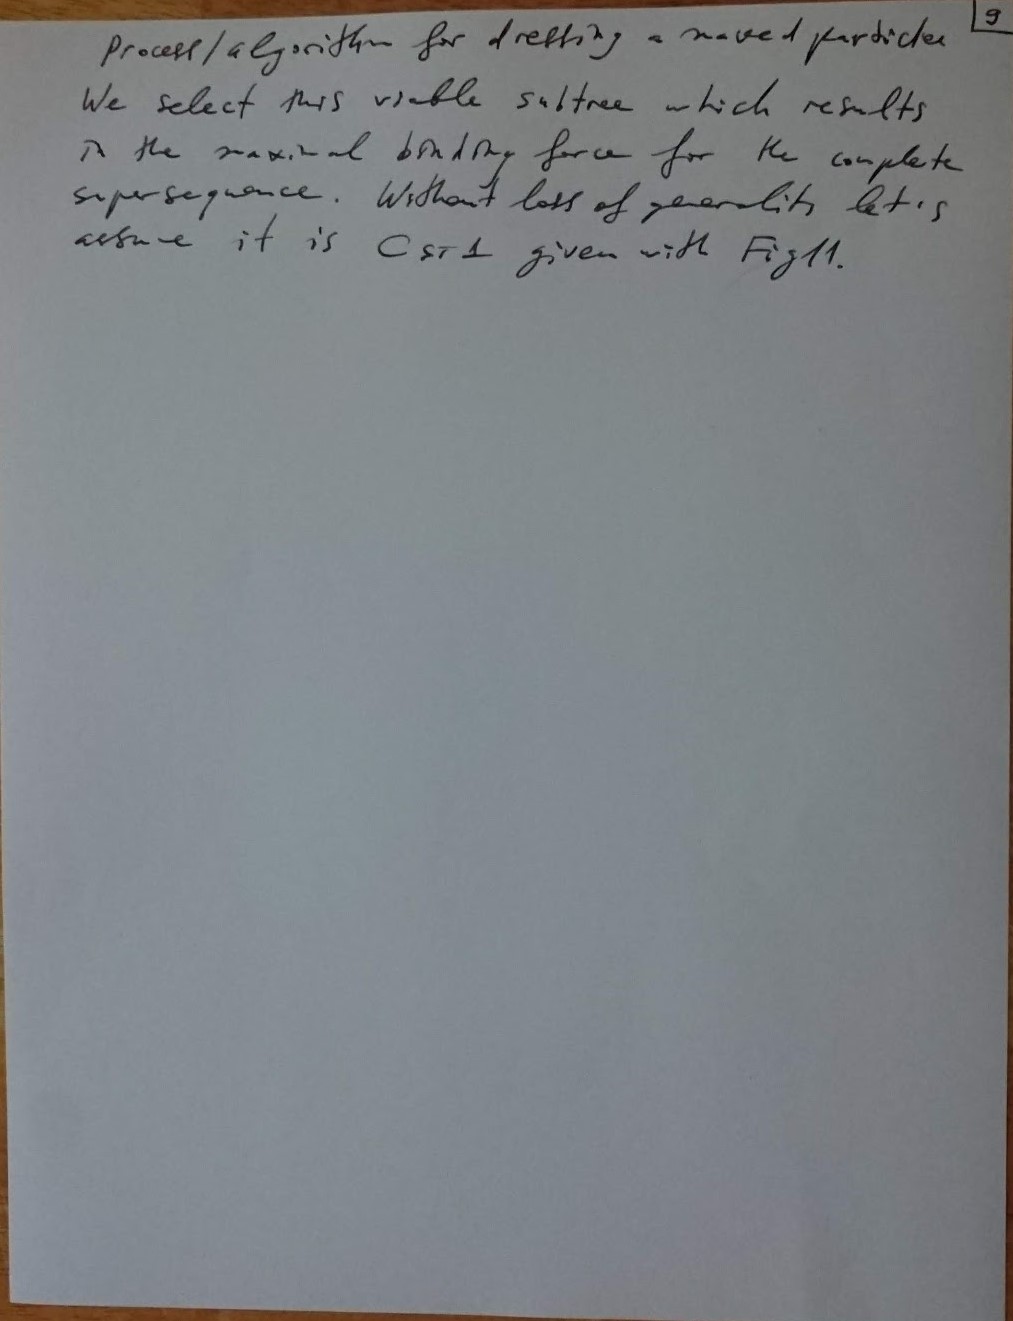 9
Process/algorithm for dressing a moved particle
We select this viable subtree which results
in the maximal binding force for the complete
supersequence. Without loss of generality let's
assume it is CST1 given with Fig11.